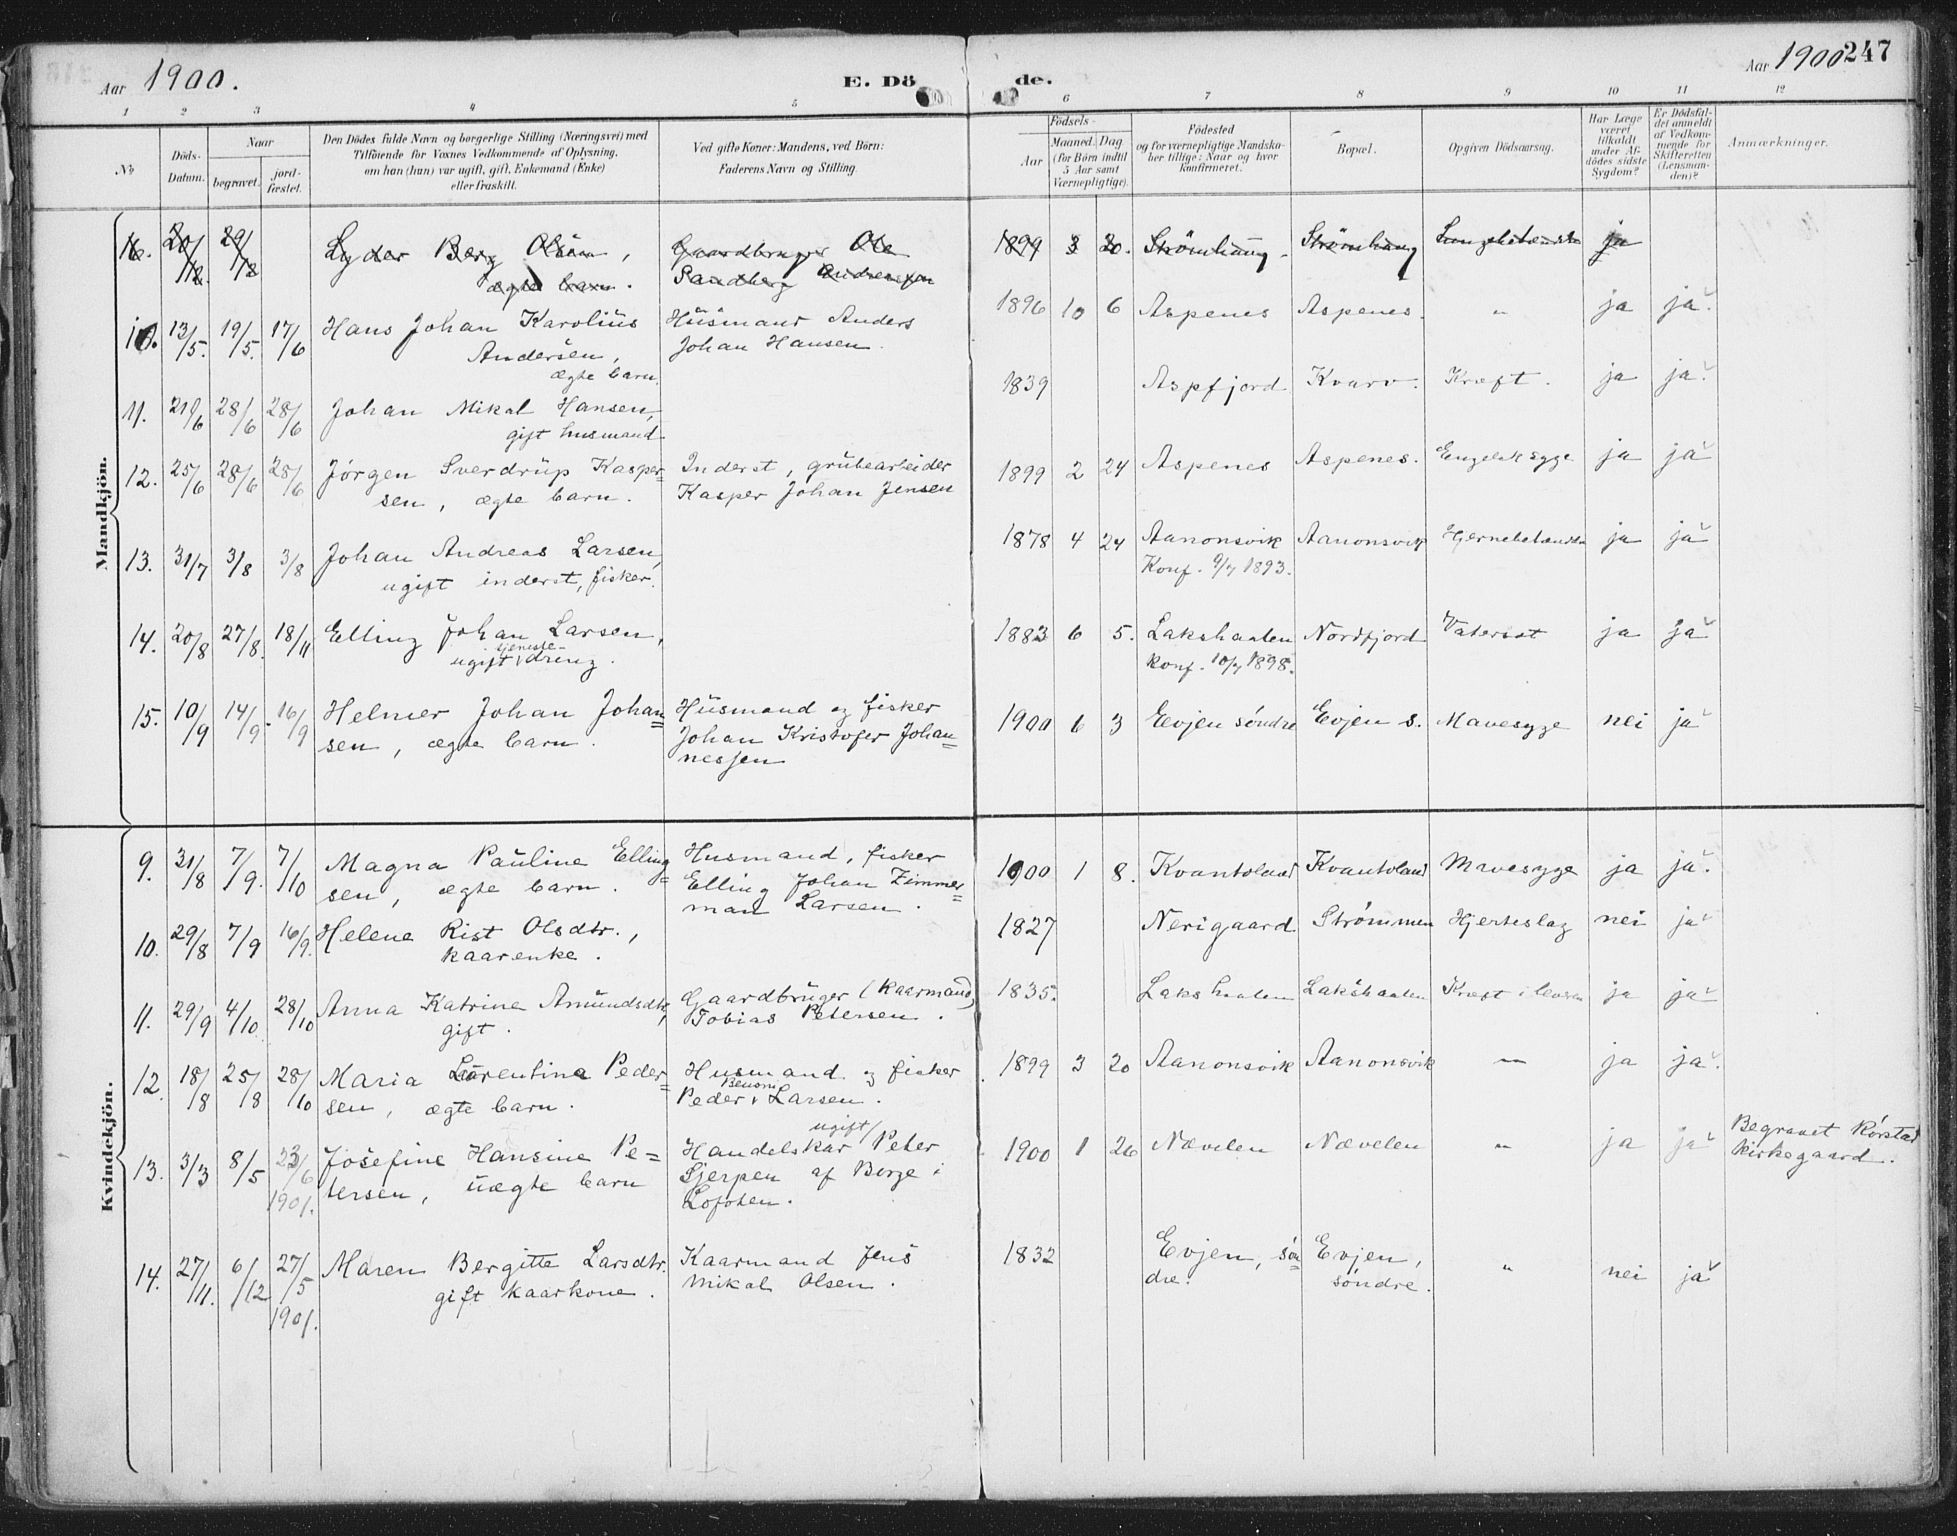 Aar 1900. E. Döde. Aar 1900 247
1 2 3 4 5 6 7 8 9 10 11 12
No
Döds-Datum.
Naar
begravet.
jord-fæstet.
Den Dödes fulde Navn og borgerlige Stilling (Næringsvei) med
Tilföiende for Voxnes Vedkommende af Oplysning,
om han (hun) var ugift, gift, Enkemand (Enke)
eller fraskilt.
Ved gifte Koner: Mandens, ved Börn:
Faderens Navn og Stilling.
Födsels-
Aar
Maaned. Dag
(for Börn indtil
5 Aar samt
Værnepligtige).
Födested
og for værnepligtige Mandska-
ber tillige: Naar og hvor
konfirmeret.
Bopæl.
Opgiven Dödsaarsag.
Har Læge
været
tilkaldt
under Af-
dödes sidste
Sygdom?
Er Dödsfal-
det anmeldt
af Vedkom-
mende for
Skifteretten
(Lensman-
den)?
Anmærkninger.
Mandkjön.
16. 20/12 29/12 Lyder Berg Olsen, Gaardbruger Ole 1899 3 20. Strømhaug. Strømhaug ja
ægte barn. Sandberg Andreassen
10. 13/5. 19/5. 17/6 Hans Johan Karolius Husmand Anders 1896 10 6 Aspenes Aspenes. " ja ja
Andersen, Johan Hansen.
ægte barn.
11. 21/6 28/6 28/6 Johan Mikal Hansen, 1839 Aspfjord Kvarv. Kræft. ja ja
gift husmand
12. 25/6 28/6 28/6 Jørgen Sverdrup Kasper- Inderst, grubearbeider 1899 2 24 Aspenes Aspenes. Engelsk syge ja ja
sen, ægte barn. Kasper Johan Jensen
13. 31/7 3/8 3/8 Johan Andreas Larsen, 1878 4 24 Aanonsvik Aanonsvik ja ja
ugift inderst, fisker. Konf. 9/7 1893.
14. 20/8 27/8. 18/11 Elling Johan Larsen, 1883 6 5. Lakshaalen Nordfjord Vatersot ja ja
tjeneste-
ugift dreng. konf. 10/7 1898.
15. 10/9 14/9. 16/9 Helmer Johan Johan- Husmand og fisker 1900 6 3 Evjen søndre Evjen s. Mavesyge nei ja
sen, ægte barn. Johan Kristofer Johan-
nessen
Kvindekjön.
9. 31/8 7/9. 7/10 Magna Pauline Elling- Husmand, fisker 1900 1 8. Kvantoland Kvantoland Mavesyge ja ja
sen, ægte barn. Elling Johan Zimmer-
man Larsen.
10. 29/8 7/9 16/9. Helene Rist Olsdtr., 1827 Nerigaard Strømmen Hjerteslag nei ja
kaarenke.
11. 29/9 4/10 28/10 Anna Katrine Amundsdtr, Gaardbruger (kaarmand) 1835. Lakshaalen Lakshaalen Kræft i leveren ja ja
gift. Tobias Petersen.
12. 18/8 25/8 28/10 Maria Laurentine Peder- Husmand og fisker 1899 3 20 Aanonsvik Aanonsvik — ja ja
sen, ægte barn. Peder Larsen.
13. 3/3 8/5 23/6 1901. Josefine Hansine Pe- ugift Handelskar Peter 1900 1 26 Nævelen Nævelen " ja ja Begravet Rørstad
tersen, uægte barn Sjerpen af Borge i kirkegaard.
Lofoten.
14. 27/11. 6/12 27/5 1901. Maren Bergitte Larsdtr. Kaarmand Jens 1832 Evjen, søn- Evjen, " nei ja
gift kaarkone. Mikal Olsen. dre. søndre.